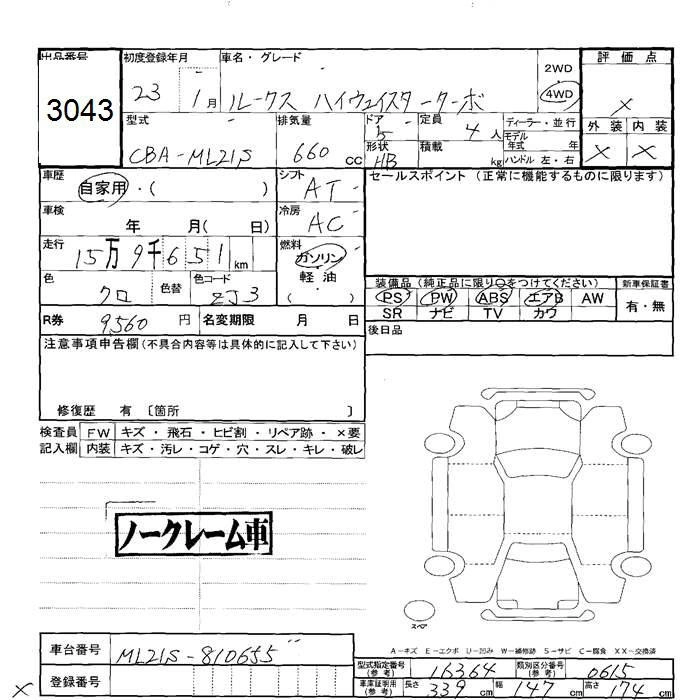 出品番号
3043
初度登録年月
23 1月
車名・グレード
ルークス ハイウェイスターターボ
2WD
4WD
評価点
×
外装 内装
× ×
型式
CBA-ML21S
排気量
660 cc
ドア
5
形状
HB
定員
4人
積載
kg
ディーラー・並行
モデル年式 年
ハンドル 左・右
車歴
自家用・( )
シフト
AT
セールスポイント (正常に機能するものに限ります)
車検
年 月( 日)
冷房
AC
走行
15万9千651km
燃料
ガソリン
軽油
( )
色
クロ
色替
色コード
ZJ3
装備品 (純正品に限り○をつけてください)
新車保証書
PS PW ABS エアB AW
有・無
SR ナビ TV カワ
R券 9560円
名変期限 月 日
後日品
注意事項申告欄(不具合内容等は具体的に記入して下さい)
修復歴 有 〔箇所 〕
検査員記入欄
FW キズ・飛石・ヒビ割・リペア跡・×要
内装 キズ・汚レ・コゲ・穴・スレ・キレ・破レ
ノークレーム車
スペア
A-キズ E-エクボ U-凹み W-補修跡 S-サビ C-腐食 XX-交換済
車台番号
ML21S-810655
型式指定番号(参考)
16364
類別区分番号(参考)
0615
登録番号
車庫証明用(参考)
長さ 339cm 幅 147cm 高さ 174cm
×